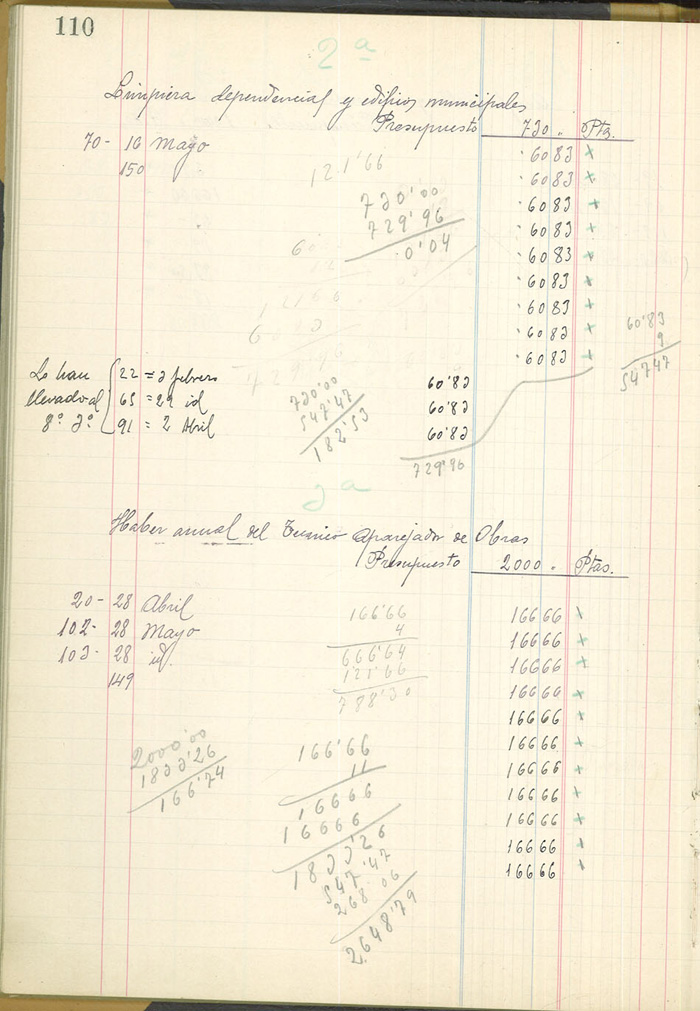 110
2ª
Limpiera dependencias y edificios municipales
Presupuesto 730 „ Ptas.
70 - 16 Mayo 60 83 +
150 60 83 +
121'66
60 83 +
730'00
729'96
0'04
60 83 +
60 83 +
60 83 +
60 83 +
60 83 +
60 83 +
60'83
9
547 47
Lo han 22 = 3 febrero 60'83
llevado al 65 = 29 id 60'83
8º 3º 91 = 2 Abril 60'83
729'96
730'00
547'47
182'53
3ª
Haber anual del Tecnico Aparejador de Obras
Presupuesto 2000 „ Ptas.
20 - 28 Abril 166 66 +
102 - 28 Mayo 166 66 +
103 - 28 id. 166 66 +
149 166 66 +
166'66
4
666'64
121'66
788'30
166 66 +
166 66 +
166 66 +
166 66 +
166 66 +
166 66 +
166 66 +
2000'00
1833'26
166'74
166'66
11
16666
16666
1833'26
547'47
268'06
2648'79